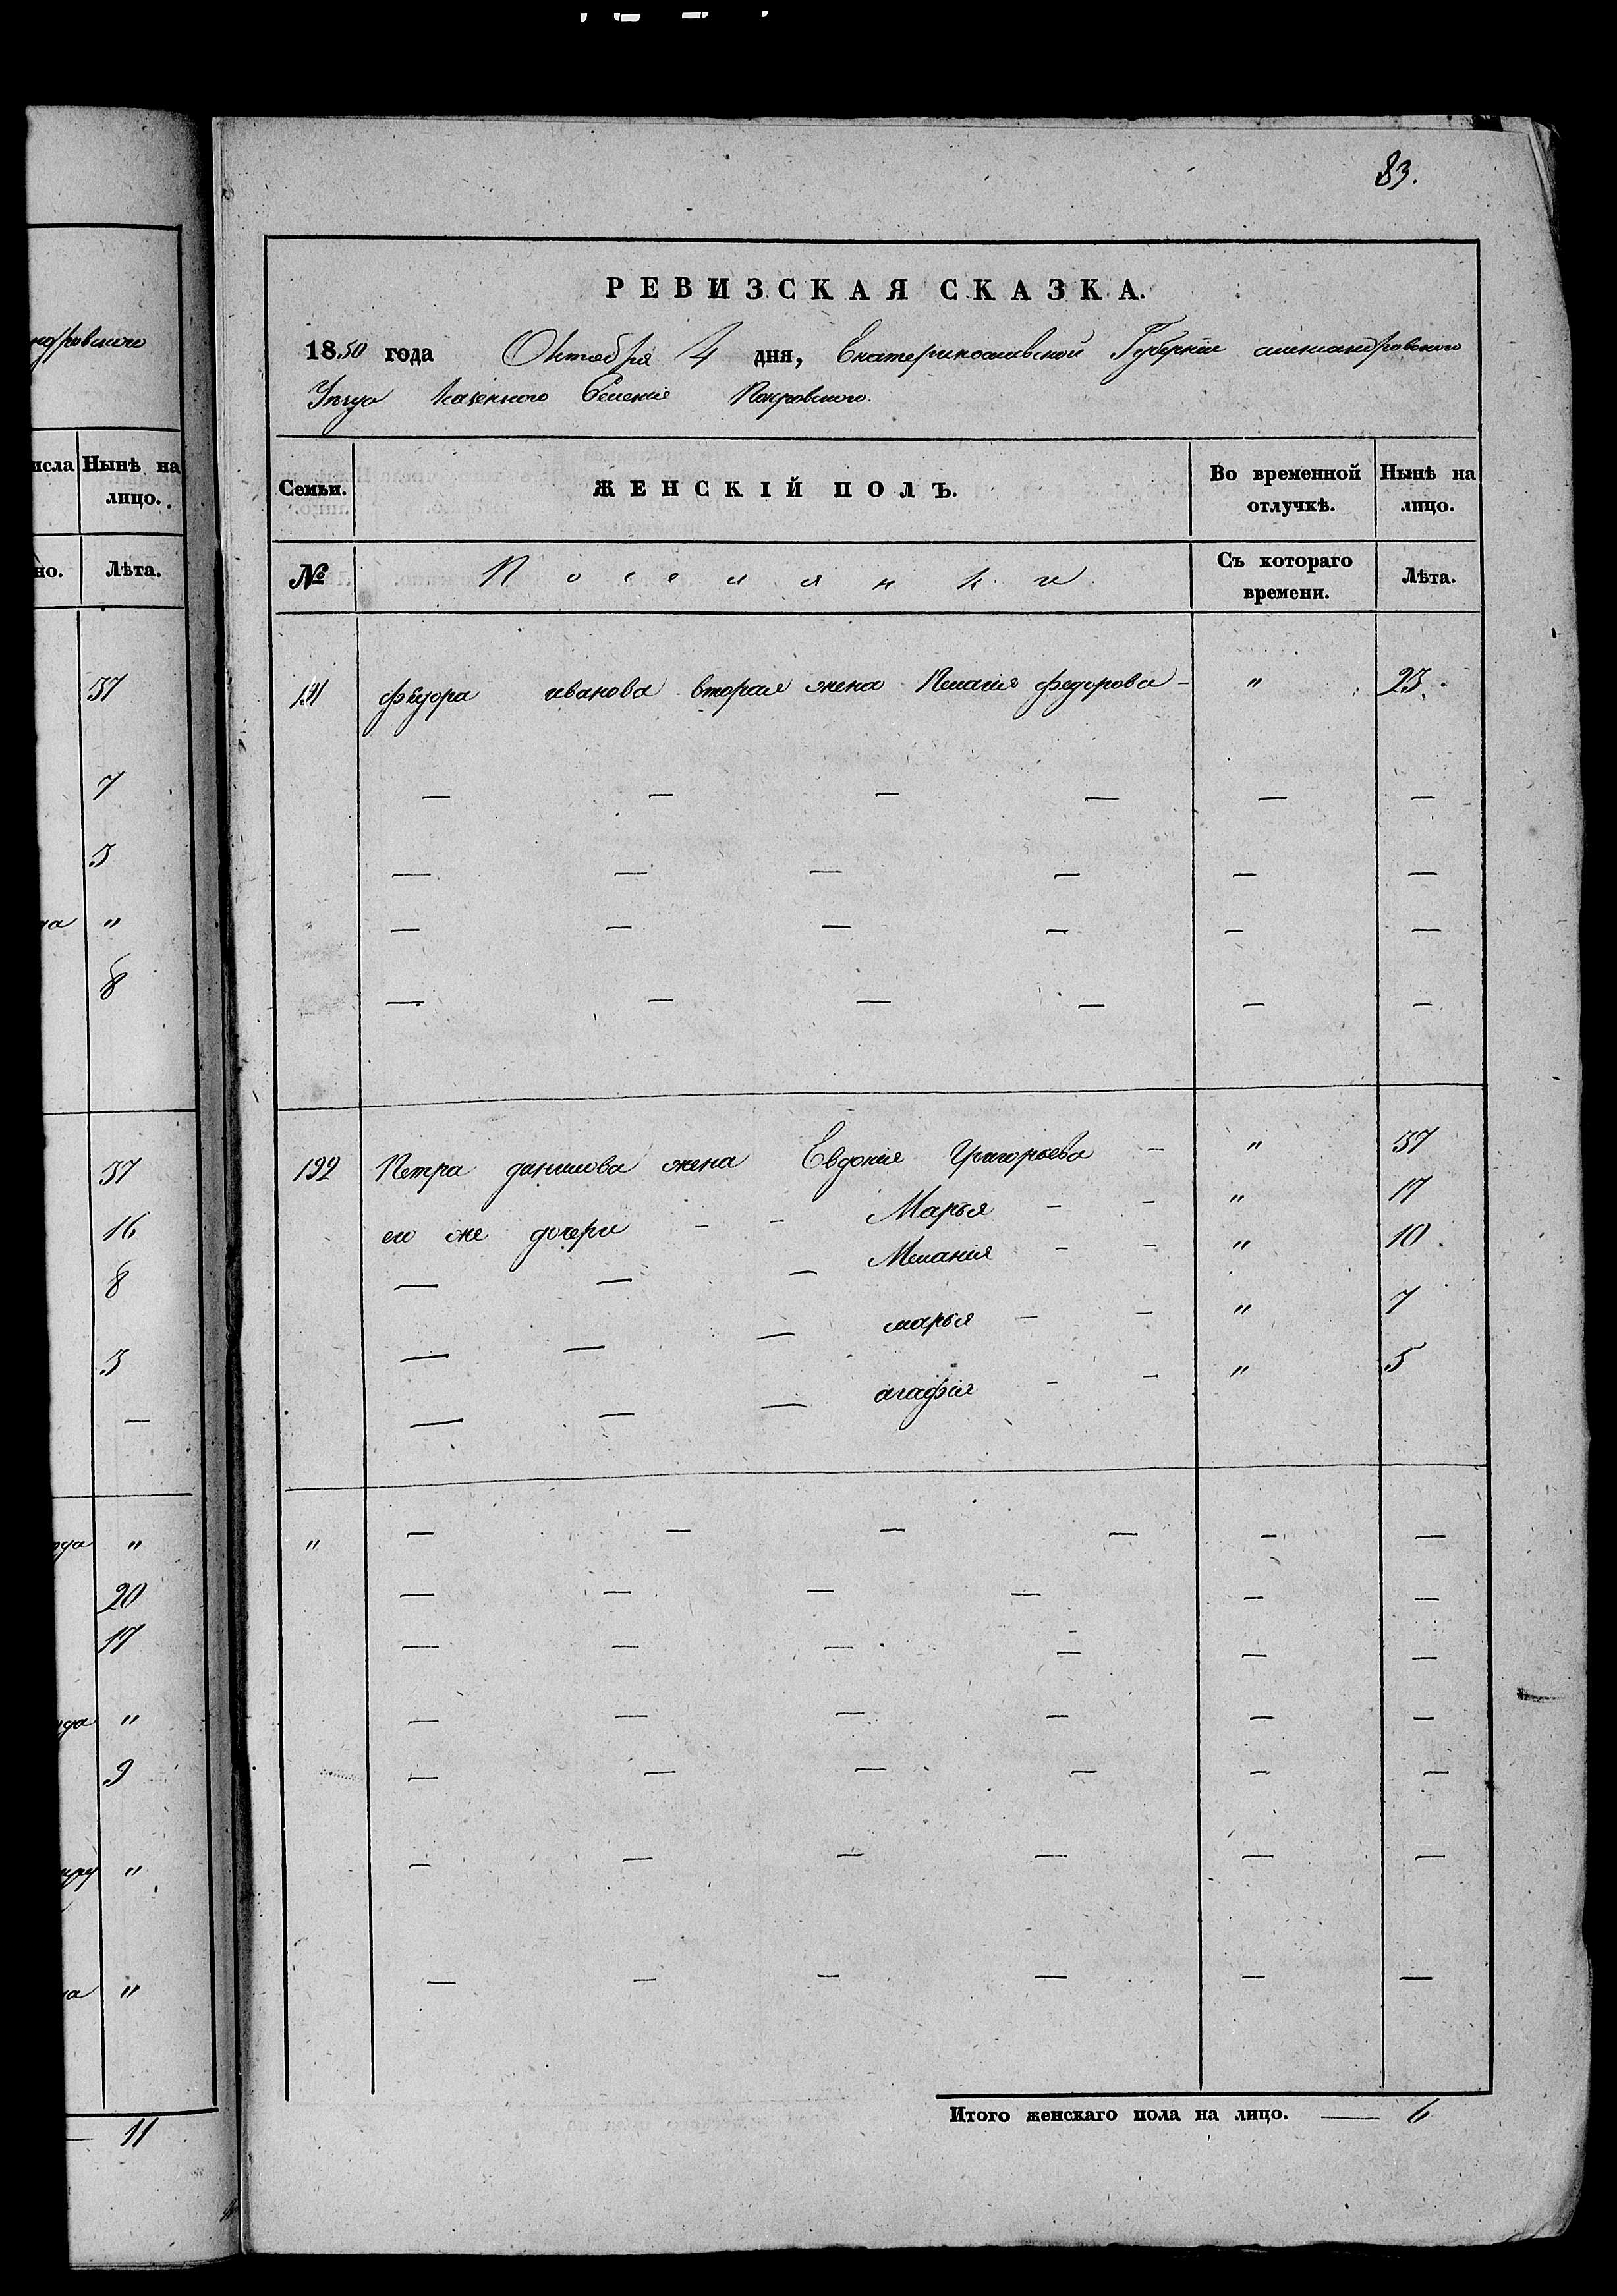 83.
РЕВИЗСКАЯ СКАЗКА.
1850 года Октября 4 дня, Екатеринославской Губерніи александровского
Уезда Казенного Селенія Покровского.
Семьи. ЖЕНСКІЙ ПОЛЪ. Во временной отлучкѣ. Нынѣ на лицо.
№ Поселянки Съ котораго времени. Лѣта.
191 Федора иванова вторая жена Пелагія федорова - " 23.
— — — — — —
— — — — — —
— — — — — —
— — — — — —
192 Петра данилова жена Евдокия Григорьева - " 37
его же дочери - - Марья - - " 17
— — — Меланія - - " 10
— — — марья - - " 7
— — — агафія - - " 5
" — — — — — —
— — — — — —
— — — — — —
— — — — — —
— — — — — —
— — — — — —
— — — — — —
Итого женскаго пола на лицо. — 6
ндровского
исла Нынѣ на лицо.
но. Лѣта.
37
7
3
"
8
37
16
8
3
—
ода "
20
17
ода "
9
"
"
— 11